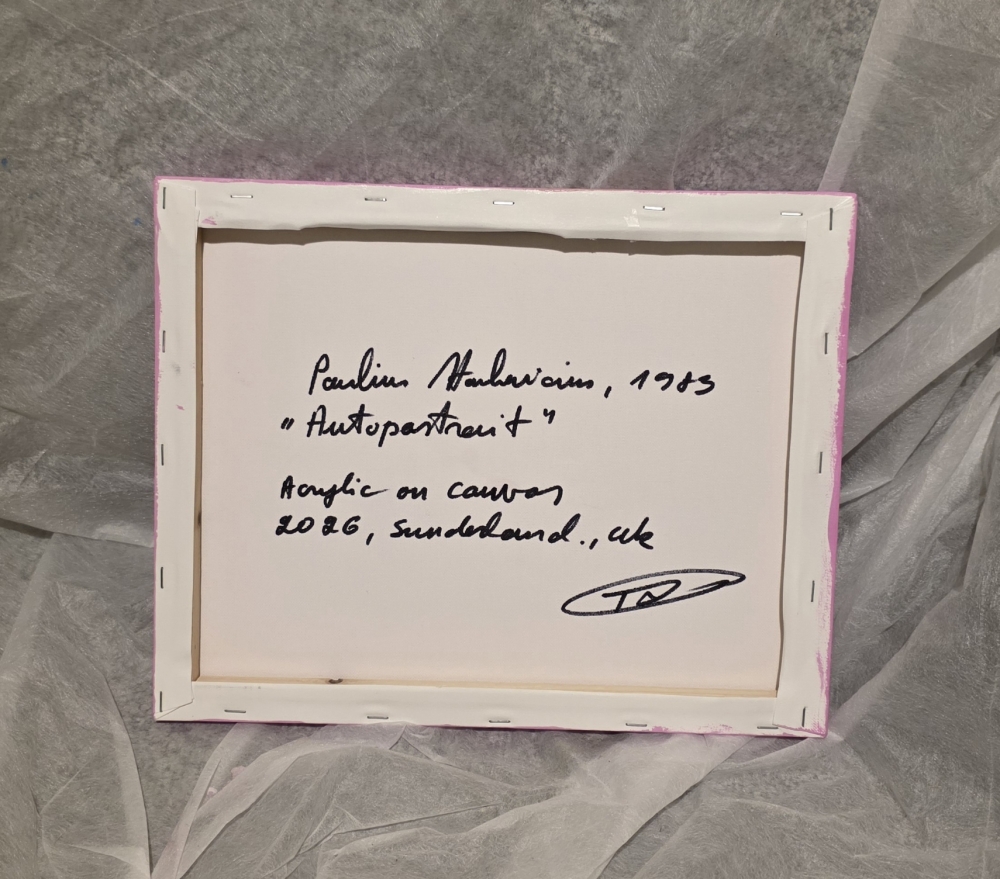 Paulius , 1983
"Autoportrait"
Acrylic on canvas
2026, Sunderland., UK